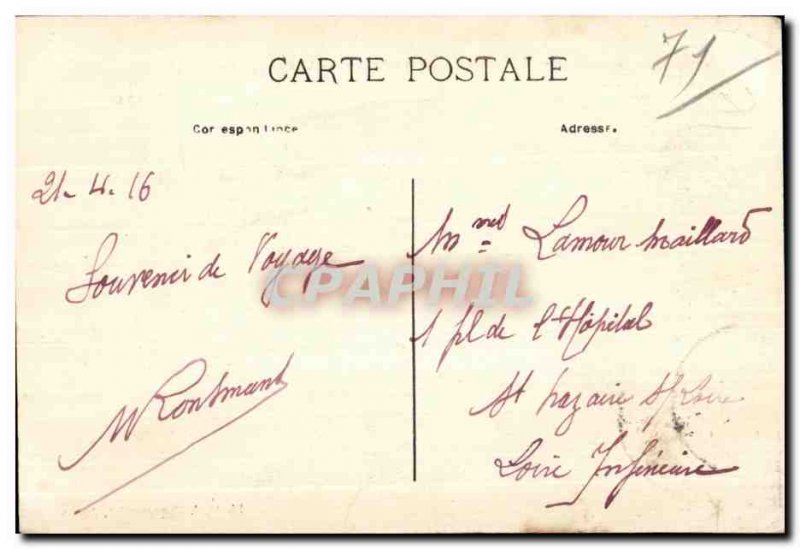 71
CARTE POSTALE
Correspondance
Adresse.
21-4-16
Souvenir de Voyage
Mme Lamour Maillard
1 pl de l'Hôpital
St Nazaire S/ Loire
Loire Inférieure
CPAPHIL